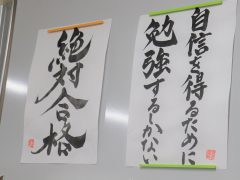 自信を得るために
勉強するしかない
絶対合格